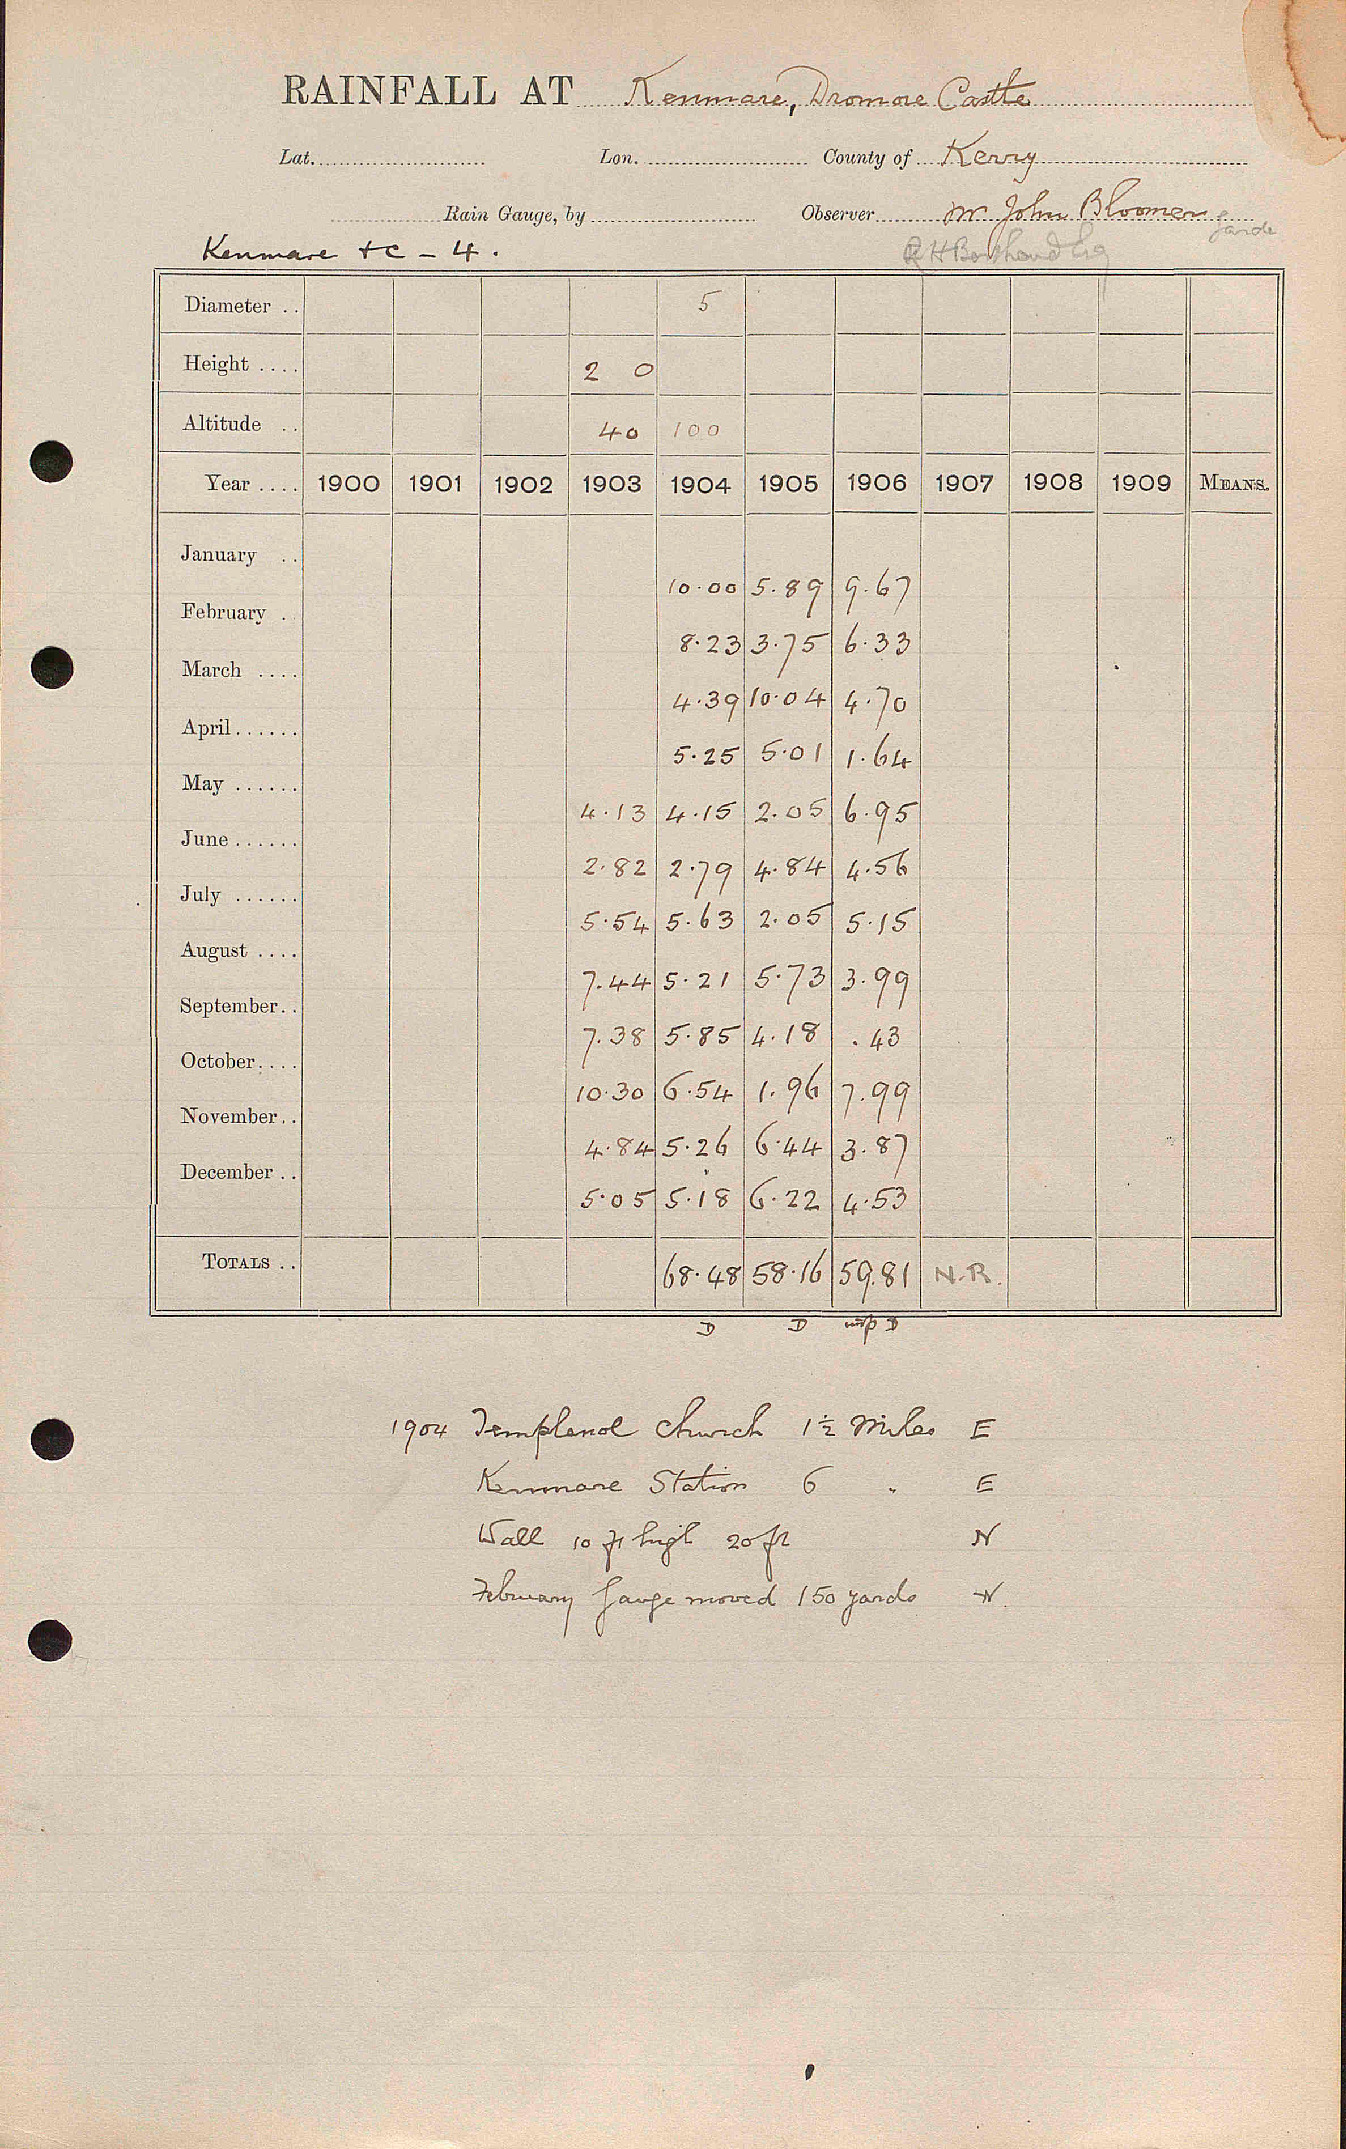 RAINFALL AT Kenmare, Dromore Castle
Lat. Lon. County of Kerry
Rain Gauge, by Observer Mr John Bloomer
Kenmare +c - 4.
Diameter .. 5
Height .... 2 0
Altitude .. 40 100
Year .... 1900 1901 1902 1903 1904 1905 1906 1907 1908 1909 MEANS.
January ..
10.00 5.89 9.67
February ..
8.23 3.75 6.33
March ....
4.39 10.04 4.70
April ......
5.25 5.01 1.64
May ......
4.13 4.15 2.05 6.95
June ......
2.82 2.79 4.84 4.56
July ......
5.54 5.63 2.05 5.15
August ....
7.44 5.21 5.73 3.99
September ..
7.38 5.85 4.18 .43
October ....
10.30 6.54 1.96 7.99
November ..
4.84 5.26 6.44 3.87
December ..
5.05 5.18 6.22 4.53
TOTALS .. 68.48 58.16 59.81 N.R.
D D D
1904 Templenoe Church 1½ Miles E
Kenmare Station 6 " E
Wall 10 ft high 20 ft N
February gauge moved 150 yards W.